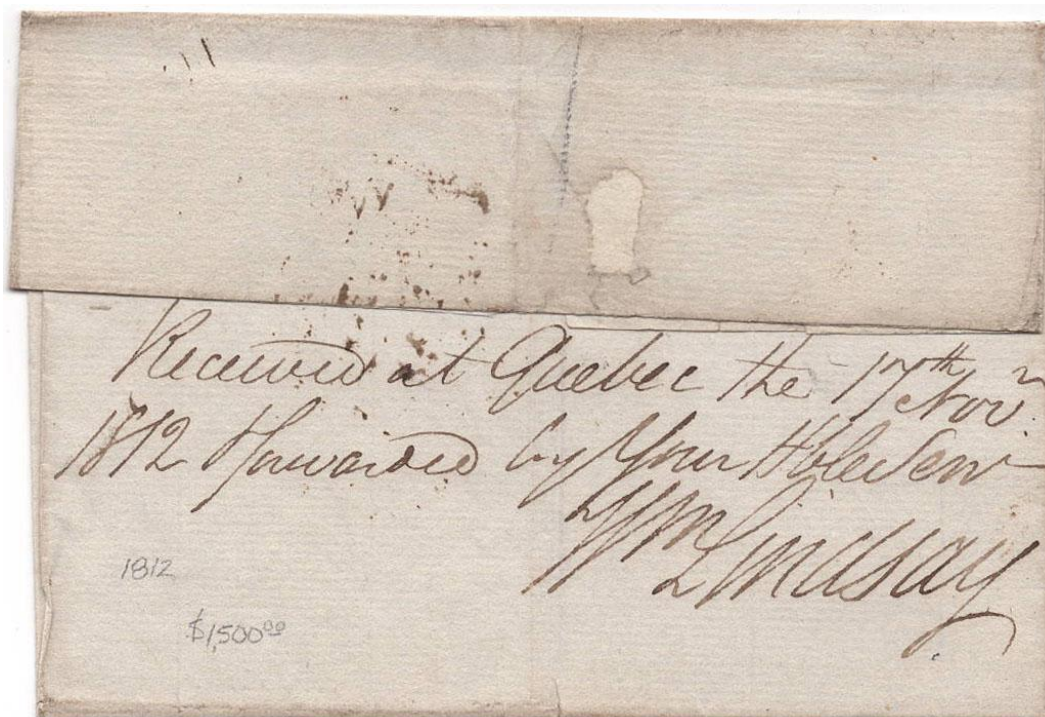 Received at Quebec the 17th Novr.
1812 Forwarded by Your Hble Serv
Wm Lindsay
1812
$1,500.00